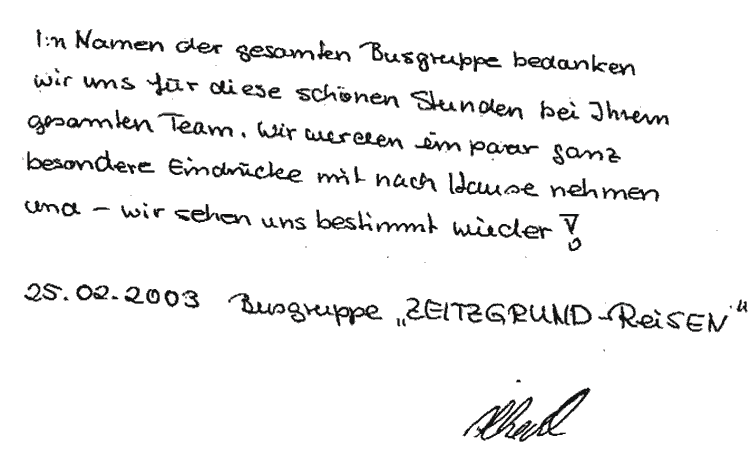 Im Namen der gesamten Busgruppe bedanken
wir uns für diese schönen Stunden bei Ihrem
gesamten Team. Wir werden ein paar ganz
besondere Eindrücke mit nach Hause nehmen
und – wir sehen uns bestimmt wieder!
25.02.2003 Busgruppe „ZEITZGRUND-ReiSEN"